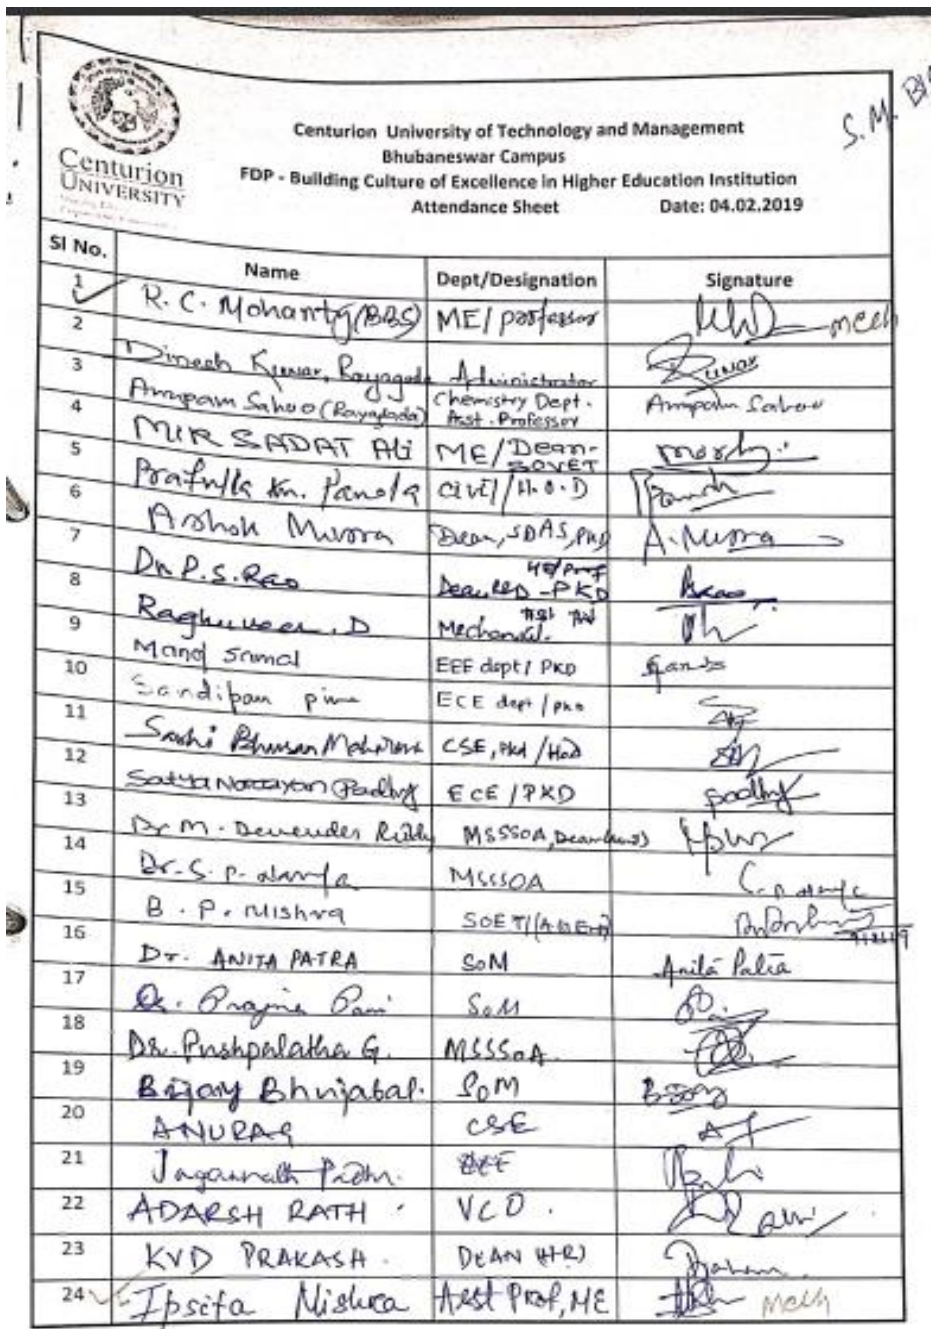 S.M.
Centurion
UNIVERSITY
Centurion University of Technology and Management
Bhubaneswar Campus
FDP - Building Culture of Excellence in Higher Education Institution
Attendance Sheet Date: 04.02.2019
Sl No. Name Dept/Designation Signature
1 R. C. Mohanty (BBS) ME/ professor Mech
2 Dinesh Kumar, Rayagada Administrator Kumar
3 Anupam Sahoo (Rayagada) Chemistry Dept. Asst. Professor Anupam Sahoo
4 MIR SADAT ALI ME/Dean- SOVET
5 Prafulla Kr. Panda Civil/H.O.D
6 Ashok Misra Dean, SOAS, PKD A. Misra
7 Dr. P.S. Rao Dean -PKD
8 Raghuveer. D Mechanical.
9 Manoj Samal EEE dept/ PKD
10 Sandipan ECE dept/ PKD
11 Sashi Bhusan CSE, PKD /HoD
12 Satya Narayan Padhy ECE/PKD Padhy
13 Dr M. Devender Reddy MSSSOA,
14 Dr. S. P. Nanda MSSSOA
15 B. P. Mishra SOET/
16 Dr. ANITA PATRA SoM Anita Patra
17 Dr. Prajna Pani SoM
18 Dr. Pushpalatha G. MSSSoA.
19 Bijay Bhujabal. SoM Bijay
20 ANURAG CSE
21 Jagannath Padhi. EEE
22 ADARSH RATH VCO.
23 KVD PRAKASH. DEAN (HR)
24 Ipsita Mishra Asst Prof, ME Mech